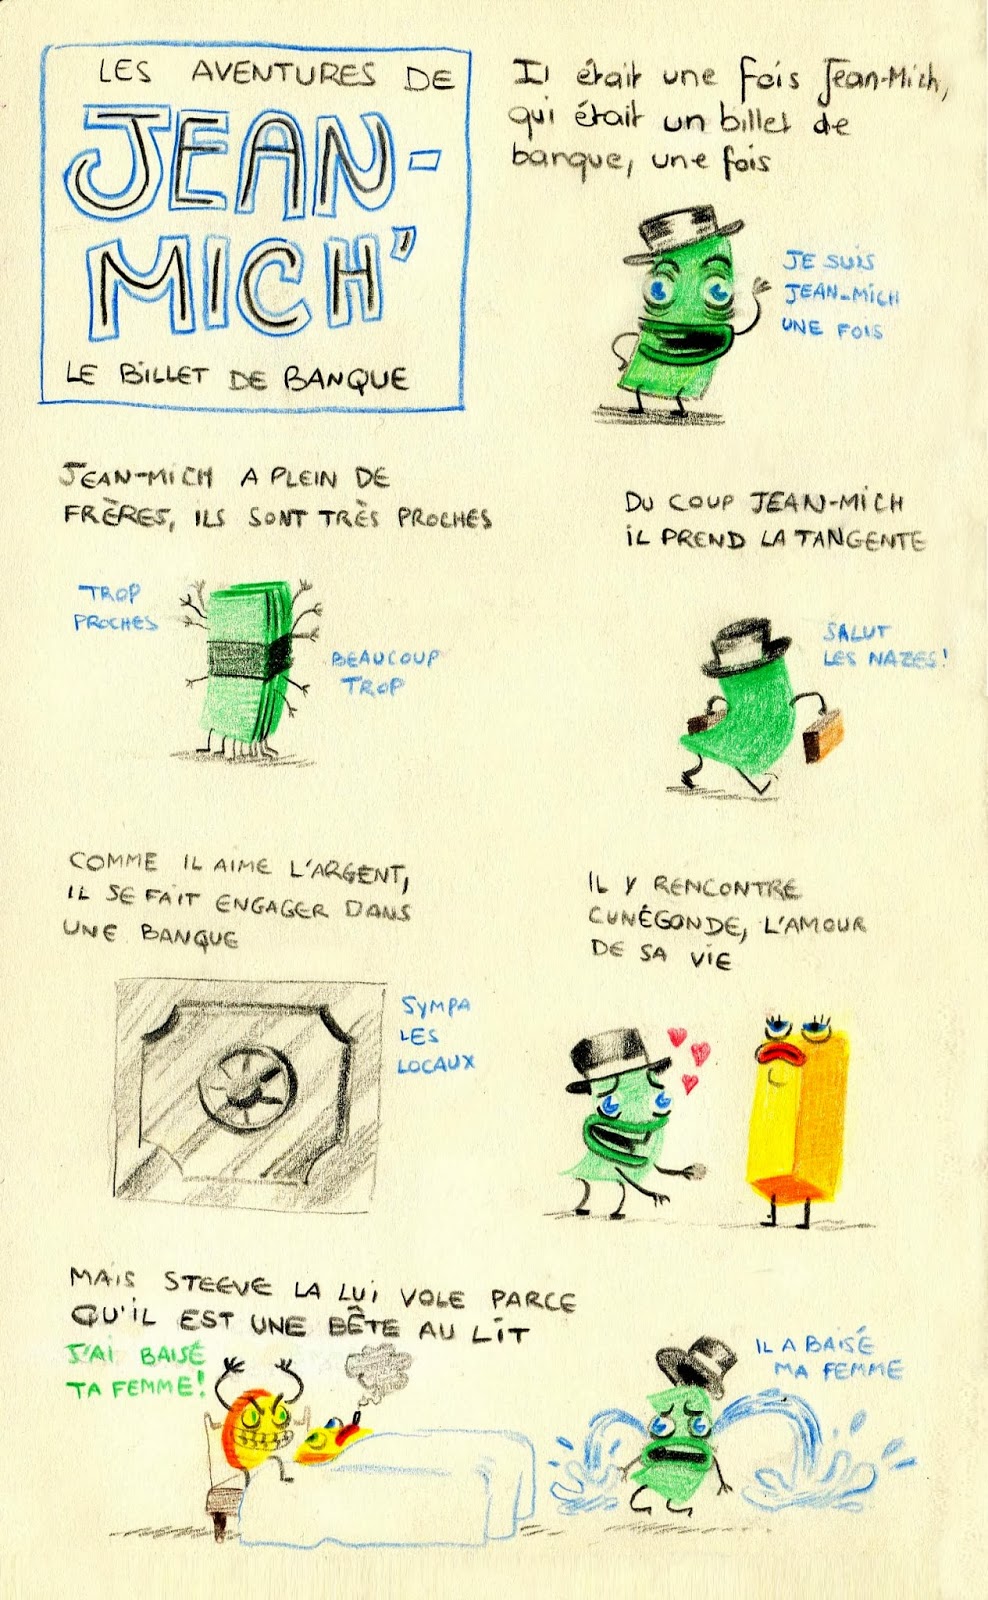 LES AVENTURES DE
JEAN-
MICH'
LE BILLET DE BANQUE
Il était une fois Jean-Mich,
qui était un billet de
banque, une fois
JE SUIS
JEAN-MICH
UNE FOIS
JEAN-MICH A PLEIN DE
FRÈRES, ILS SONT TRÈS PROCHES
TROP
PROCHES
BEAUCOUP
TROP
DU COUP JEAN-MICH
IL PREND LA TANGENTE
SALUT
LES NAZES!
COMME IL AIME L'ARGENT,
IL SE FAIT ENGAGER DANS
UNE BANQUE
SYMPA
LES
LOCAUX
IL Y RENCONTRE
CUNÉGONDE, L'AMOUR
DE SA VIE
MAIS STEEVE LA LUI VOLE PARCE
QU'IL EST UNE BÊTE AU LIT
J'AI BAISÉ
TA FEMME!
IL A BAISÉ
MA FEMME